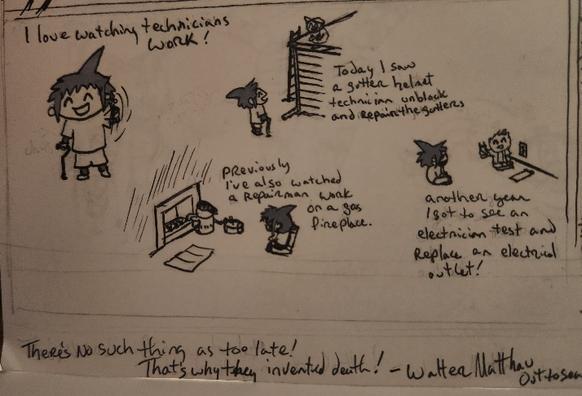 I love watching technicians
WORK!
Today I saw
a gutter helmet
technician unblock
and Repair the gutters
Previously
I've also watched
a Repairman work
on a gas
fireplace.
another year
I got to see an
electrician test and
Replace an electrical
outlet!
There's No such thing as too late!
That's why they invented death! - Walter Matthau
Out to Sea